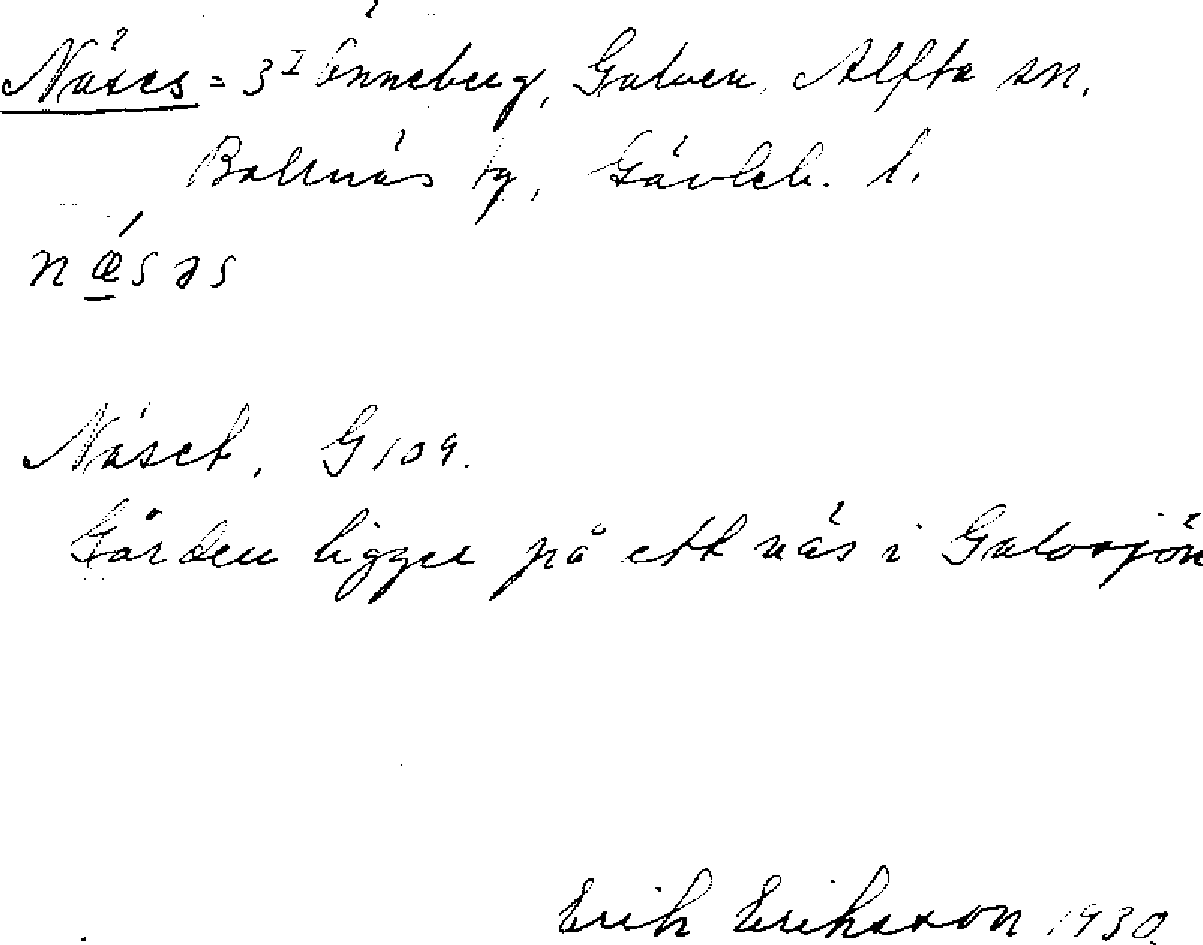 Näses = 3¹ Änneberg, Galven, Alfta sn.
Bollnäs tg, Gävleb. l.
nǽ̱səs
Näset. G 109.
Gården ligger på ett näs i Galvsjön
Erik Eriksson 1930.